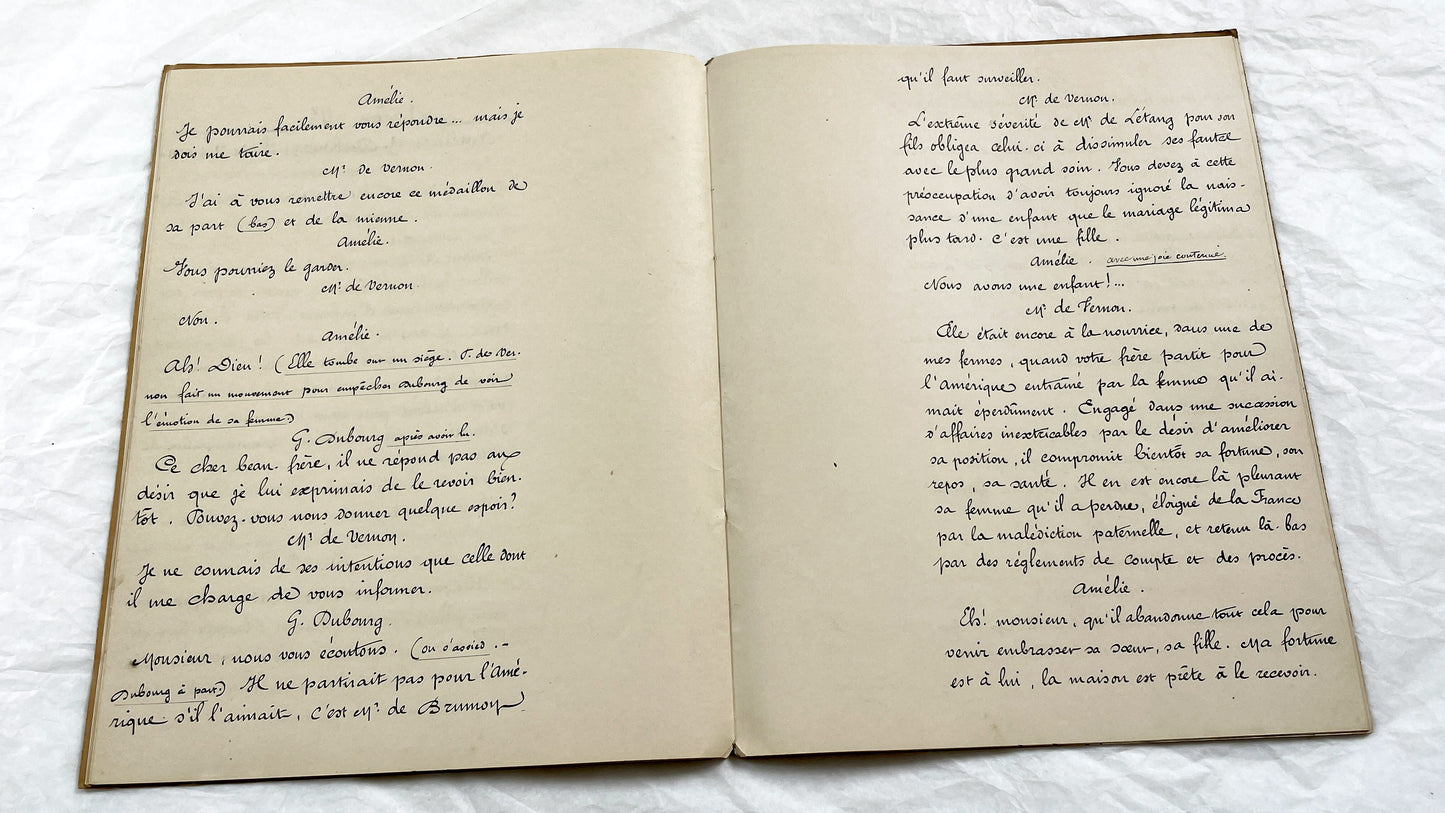 Amélie.
Je pourrais facilement vous répondre ... mais je
dois me taire.
Mr de Vernon.
J'ai à vous remettre encore ce médaillon de
sa part (bas) et de la mienne.
Amélie.
Vous pourriez le garder.
Mr de Vernon.
Non.
Amélie.
Ah! Dieu! (Elle tombe sur un siège. P. de Ver-
non fait un mouvement pour empêcher Dubourg de voir
l'émotion de sa femme.)
G. Dubourg après avoir lu.
Ce cher beau-frère, il ne répond pas aux
désir que je lui exprimais de le revoir bien-
tôt. Pouvez-vous nous donner quelque espoir?
Mr de Vernon.
Je ne connais de ses intentions que celle dont
il me charge de vous informer.
G. Dubourg.
Monsieur, nous vous écoutons. (on s'assied.-
Dubourg à part.) Il ne partirait pas pour l'Amé-
rique s'il l'aimait, c'est Mr de Brumoy
qu'il faut surveiller.
Mr de Vernon.
L'extrême sévérité de Mr de Létang pour son
fils obligea celui-ci à dissimuler ses fautes
avec le plus grand soin. Vous devez à cette
préoccupation d'avoir toujours ignoré la nais-
sance d'une enfant que le mariage légitima
plus tard. C'est une fille.
Amélie. avec une joie contenue.
Nous avons une enfant!...
Mr de Vernon.
Elle était encore à la nourrice, dans une de
mes fermes, quand votre frère partit pour
l'Amérique entraîné par la femme qu'il ai-
mait éperdûment. Engagé dans une succession
d'affaires inextricables par le désir d'améliorer
sa position, il compromit bientôt sa fortune, son
repos, sa santé. Il en est encore là pleurant
sa femme qu'il a perdue, éloigné de la France
par la malédiction paternelle, et retenu là-bas
par des réglements de compte et des procès.
Amélie.
Eh! monsieur, qu'il abandonne tout cela pour
venir embrasser sa sœur, sa fille. Ma fortune
est à lui, la maison est prête à le recevoir.